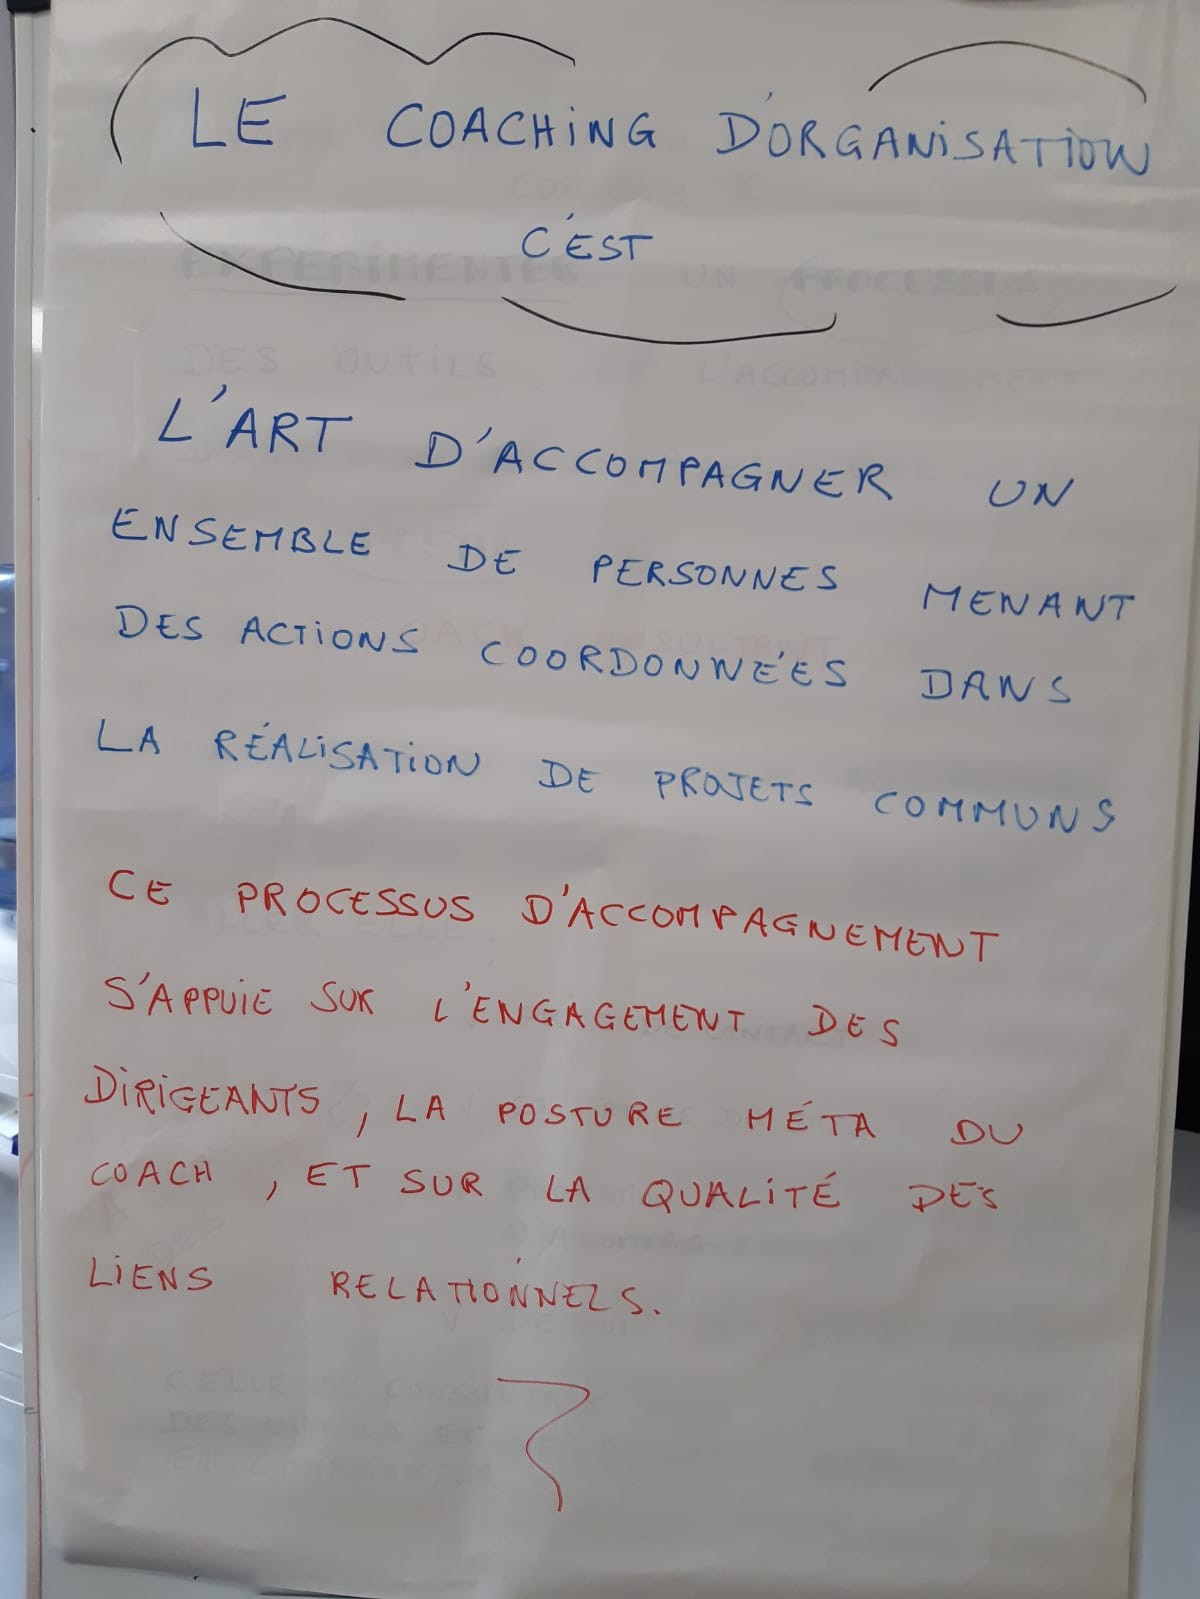 LE COACHING D'ORGANISATION
C'EST
EXPERIMENTER UN PROCESSUS
DES OUTILS L'ACCOMPAGNEMENT
L'ART D'ACCOMPAGNER UN
ENSEMBLE DE PERSONNES MENANT
DES ACTIONS COORDONNÉES DANS
LA RÉALISATION DE PROJETS COMMUNS
CE PROCESSUS D'ACCOMPAGNEMENT
S'APPUIE SUR L'ENGAGEMENT DES
DIRIGEANTS, LA POSTURE MÉTA DU
COACH, ET SUR LA QUALITÉ DES
LIENS RELATIONNELS.